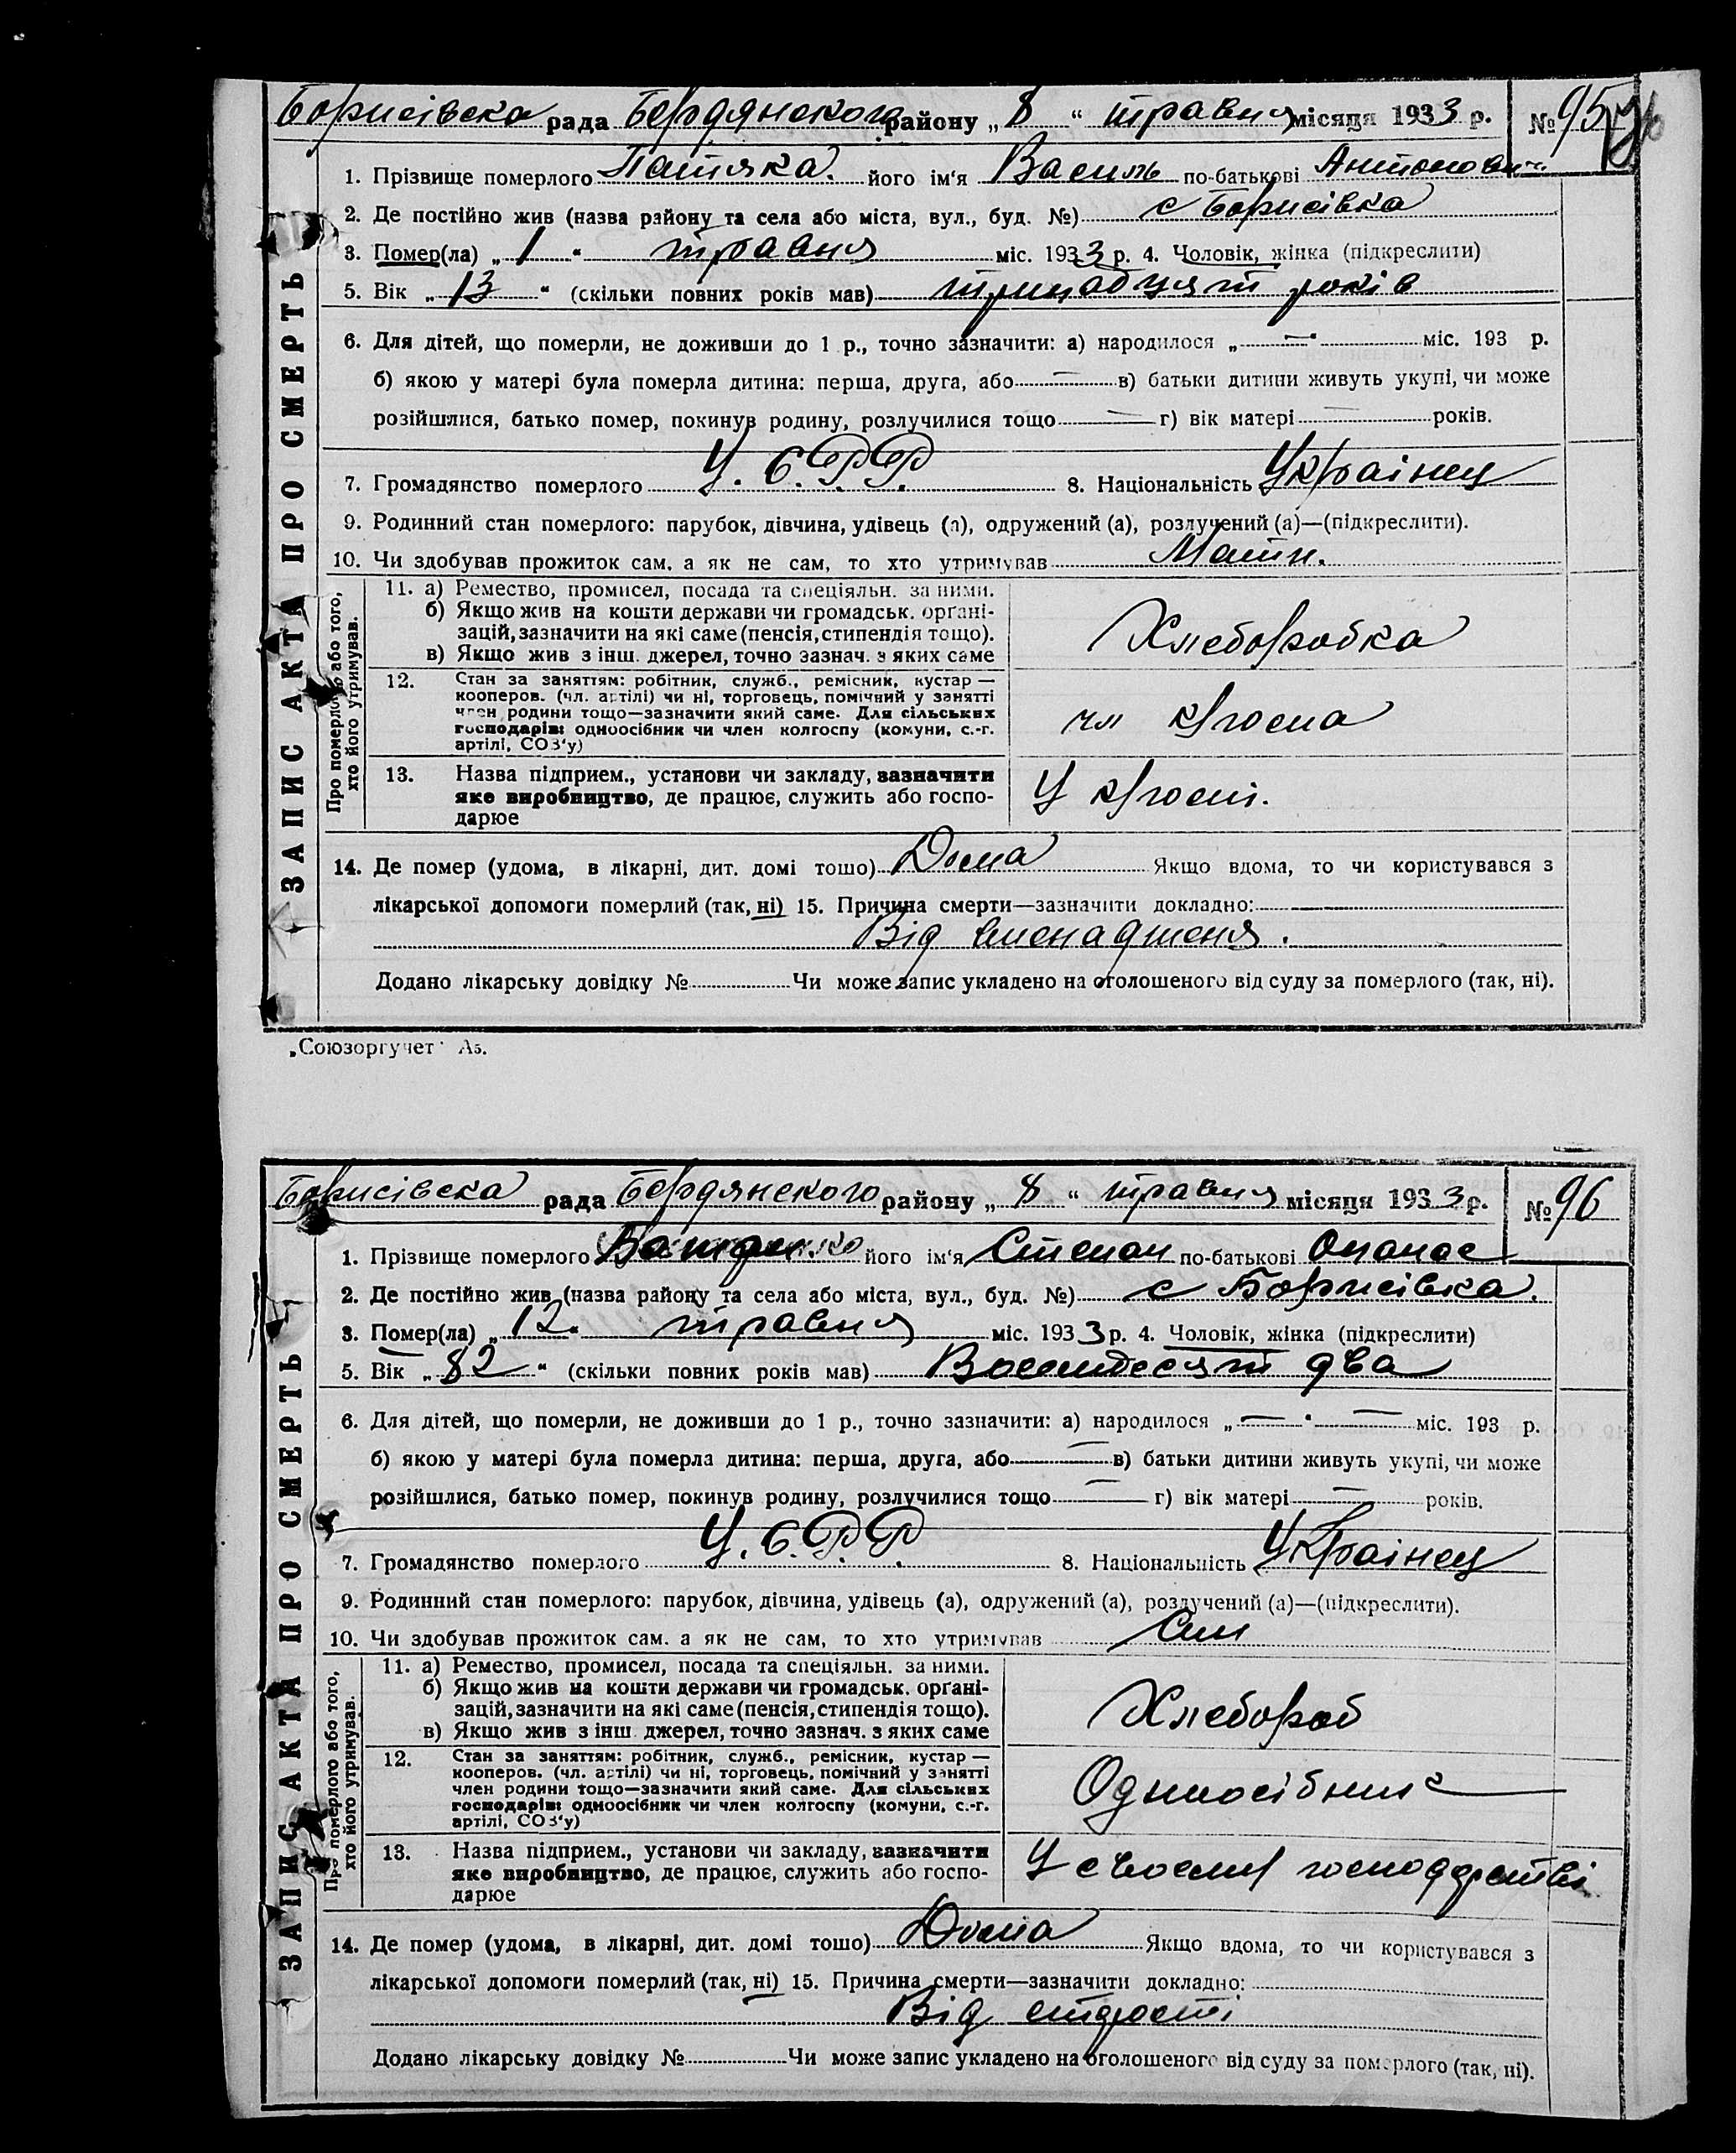 Борисівска рада Бердянского району „ 8 “ травня місяця 1933 р. № 95
1. Прізвище померлого Патяка. його ім'я Василь по-батькові Антонович
2. Де постійно жив (назва району та села або міста, вул., буд. №) с Борисівка
3. Помер(ла) „ 1 “ травня міс. 1933 р. 4. Чоловік, жінка (підкреслити)
5. Вік „ 13 “ (скільки повних років мав) тринадцят років
6. Для дітей, що померли, не доживши до 1 р., точно зазначити: а) народилося „ — “ міс. 193 р.
б) якою у матері була померла дитина: перша, друга, або — в) батьки дитини живуть укупі, чи може
розійшлися, батько помер, покинув родину, розлучилися тощо — г) вік матері — років.
7. Громадянство померлого У.С.Р.Р. 8. Національність Українец
9. Родинний стан померлого: парубок, дівчина, удівець (а), одружений (а), розлучений (а)—(підкреслити).
10. Чи здобував прожиток сам, а як не сам, то хто утримував Мати.
ЗАПИС АКТА ПРО СМЕРТЬ
Про померлого або того, хто його утримував.
11. а) Ремество, промисел, посада та спеціяльн. за ними.
б) Якщо жив на кошти держави чи громадськ. орґані-
зацій, зазначити на які саме (пенсія, стипендія тощо).
в) Якщо жив з інш. джерел, точно зазнач. з яких саме
Хлеборобка
12. Стан за заняттям: робітник, служб., ремісник, кустар —
кооперов. (чл. артілі) чи ні, торговець, помічний у занятті
член родини тощо—зазначити який саме. Для сільських
господарів: одноосібник чи член колгоспу (комуни, с.-г.
артілі, СОЗ'у)
чл
13. Назва підприєм., установи чи закладу, зазначити
яке виробництво, де працює, служить або госпо-
дарює
У
14. Де помер (удома, в лікарні, дит. домі тощо) Дома Якщо вдома, то чи користувався з
лікарської допомоги померлий (так, ні) 15. Причина смерти—зазначити докладно:
Від
Додано лікарську довідку № Чи може запис укладено на оголошеного від суду за померлого (так, ні).
„Союзоргучет“ А5.
Борисівска рада Бердянского району „ 8 “ травня місяця 1933 р. № 96
1. Прізвище померлого його ім'я Степан по-батькові Опанас
2. Де постійно жив (назва району та села або міста, вул., буд. №) с Борисівка.
3. Помер(ла) „ 12 “ травня міс. 1933 р. 4. Чоловік, жінка (підкреслити)
5. Вік „ 82 “ (скільки повних років мав) Восемдесят два
6. Для дітей, що померли, не доживши до 1 р., точно зазначити: а) народилося „ — “ — міс. 193 р.
б) якою у матері була померла дитина: перша, друга, або — в) батьки дитини живуть укупі, чи може
розійшлися, батько помер, покинув родину, розлучилися тощо — г) вік матері — років.
7. Громадянство померлого У.С.Р.Р. 8. Національність Українец
9. Родинний стан померлого: парубок, дівчина, удівець (а), одружений (а), розлучений (а)—(підкреслити).
10. Чи здобував прожиток сам. а як не сам, то хто утримував Син
ЗАПИС АКТА ПРО СМЕРТЬ
Про померлого або того, хто його утримував.
11. а) Ремество, промисел, посада та спеціяльн. за ними.
б) Якщо жив на кошти держави чи громадськ. орґані-
зацій, зазначити на які саме (пенсія, стипендія тощо).
в) Якщо жив з інш. джерел, точно зазнач. з яких саме
Хлебороб
12. Стан за заняттям: робітник, служб., ремісник, кустар —
кооперов. (чл. артілі) чи ні, торговець, помічний у занятті
член родини тощо—зазначити який саме. Для сільських
господарів: одноосібник чи член колгоспу (комуни, с.-г.
артілі, СОЗ'у)
Одноосібник
13. Назва підприєм., установи чи закладу, зазначити
яке виробництво, де працює, служить або госпо-
дарює
У своєму господарстві
14. Де помер (удома, в лікарні, дит. домі тощо) Дома Якщо вдома, то чи користувався з
лікарської допомоги померлий (так, ні) 15. Причина смерти—зазначити докладно:
Від старості
Додано лікарську довідку № Чи може запис укладено на оголошеного від суду за померлого (так, ні).